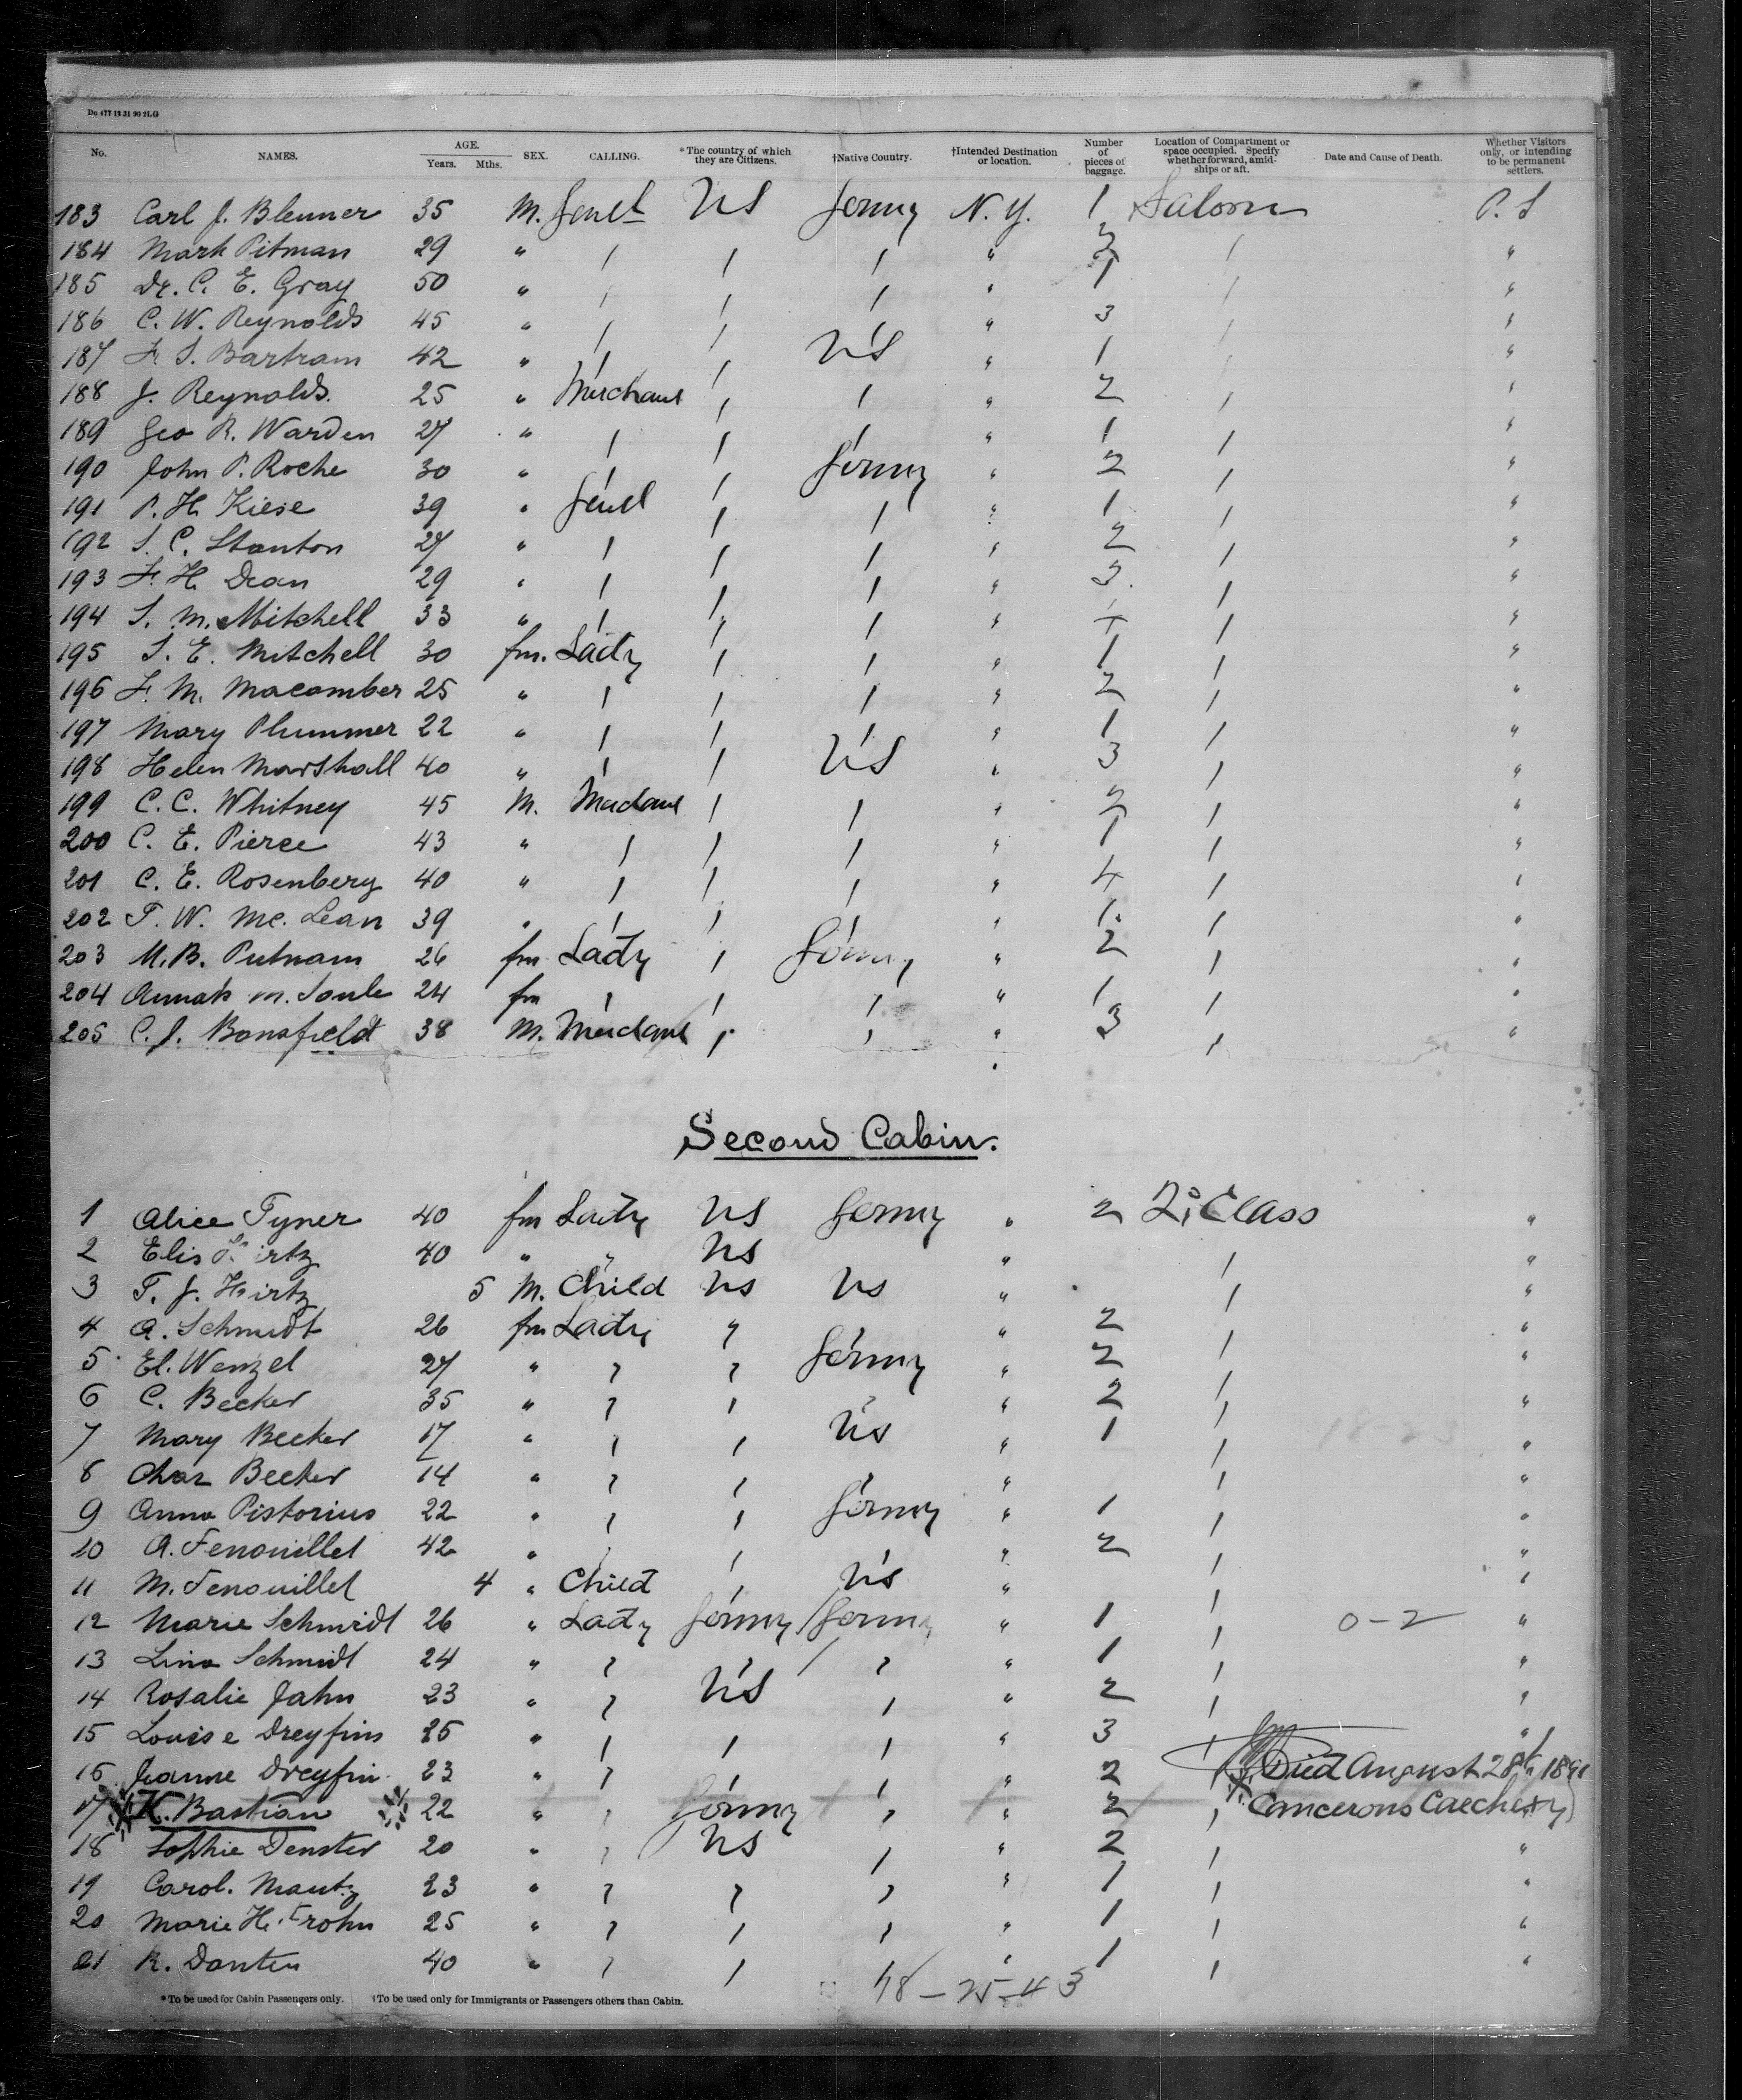 Do 477 12 31 90 2LG
No. NAMES. AGE. Years. Mths. SEX. CALLING. *The country of which they are Citizens. †Native Country. †Intended Destination or location. Number of pieces of baggage. Location of Compartment or space occupied. Specify whether forward, amidships or aft. Date and Cause of Death. Whether Visitors only, or intending to be permanent settlers.
183 Carl J. Blenner 35 M. Gent US Germy N.Y. 1 Saloon P.S
184 Mark Pitman 29 " / / / " / "
185 Dr. C. E. Gray 50 " / / / " 1 / "
186 C. W. Reynolds 45 " / / / " 3 / "
187 F. S. Bartram 42 " / / US " 1 / "
188 J. Reynolds. 25 " Merchant / / " 2 / "
189 Geo R. Warden 27 " / / / " 1 / "
190 John P. Roche 30 " / / Germy " 2 / "
191 P. H. Kiese 39 " Gent / / " 1 / "
192 S. C. Stanton 27 " / / / " 2 / "
193 F. H. Dean 29 " / / / " 3 / "
194 S. M. Mitchell 33 " / / / " / "
195 S. E. Mitchell 30 fm. Lady / / " 1 / "
196 F. M. Macomber 25 " / / / " 2 / "
197 Mary Plummer 22 " / / / " 1 / "
198 Helen Marshall 40 " / / US " 3 / "
199 C. C. Whitney 45 M. Merchant / / " 2 / "
200 C. E. Pierce 43 " / / / " 1 / "
201 C. E. Rosenberg 40 " / / / " 4 / "
202 T. W. Mc. Lean 39 " / / / " 1 / "
203 M. B. Putnam 26 fm Lady / Germy " 2 / "
204 Annah M. Soule 24 fm / / / " 1 / "
205 C. J. Bonsfield 38 M. Merchant / / " 3 / "
Second Cabin.
1 Alice Tyner 40 fm Lady US Germy " 2 2. Class "
2 Elis 40 " " US " / "
3 T. J. Hirtz 5 M. Child US US " / "
4 A. Schmidt 26 fm Lady " " 2 / "
5 El. Wenzel 27 " / / Germy " 2 / "
6 C. Becker 35 " / / / " 2 / "
7 Mary Becker 17 " / / US " 1 / "
8 Char Becker 14 " / / / " / "
9 Anna Pistorius 22 " / / Germy " 1 / "
10 A. Fenouillet 42 " / / / " 2 / "
11 M. Fenouillet 4 " Child / US " / "
12 Marie Schmidt 26 " Lady Germy / Germy " 1 / 0-2 "
13 Lina Schmidt 24 " / / / " 1 / "
14 Rosalie Jahn 23 " / US / " 2 / "
15 Louise Dreyfus 25 " / / / " 3 / "
16 Jeanne Dreyfus 23 " / / / " 2 / Died August 28th 1891
17 K. Bastian 22 " / Germy / " 2 / Cancerous Caechexy)
18 Sophie Denster 20 " / US / " 2 / "
19 Carol. Mantz 23 " / / / " 1 / "
20 Marie H. Frohn 25 " / / / " 1 / "
21 R. Danten 40 " / / " 1 / "
18-25-43
*To be used for Cabin Passengers only. †To be used only for Immigrants or Passengers others than Cabin.